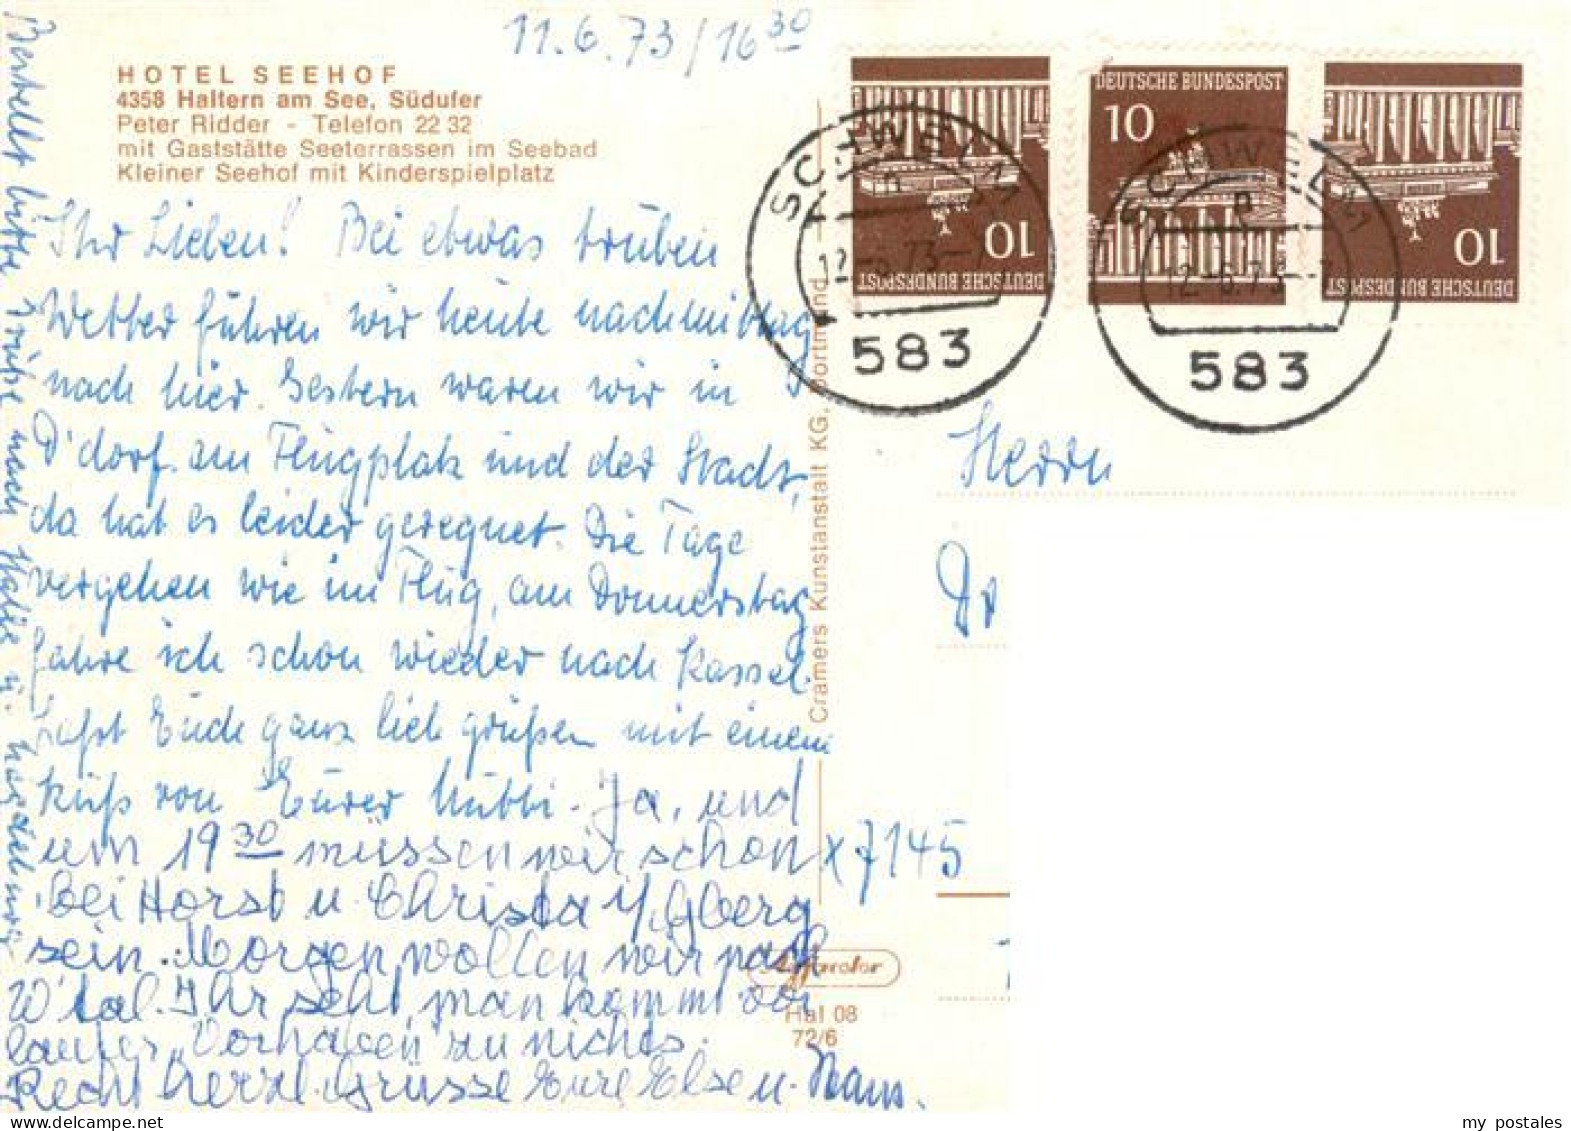 11.6.73/16³⁰
HOTEL SEEHOF
4358 Haltern am See, Südufer
Peter Ridder - Telefon 22 32
mit Gaststätte Seeterrassen im Seebad
Kleiner Seehof mit Kinderspielplatz
Ihr Lieben! Bei etwas trüben
Wetter führen wir heute nachmittag
nach hier. Gestern waren wir in
D'dorf am Flugplatz und der Stadt,
da hat es leider geregnet. Die Tage
vergehen wie im Flug, am Donnerstag
fahre ich schon wieder nach Kassel.
Laßt Euch ganz lieb grüßen mit einem
Kuß von Eurer Mutti. Ja, und
um 19³⁰ müssen wir schon
bei Horst u. Christa i/
sein. Morgen wollen wir nach
W'tal. Ihr seht, man kommt vor
lauter Vorhaben zu nichts.
Recht herzl. Grüsse Eure Else u. Hans.
Bestellt bitte Grüße nach u.
Cramers Kunstanstalt KG, Dortmund
DEUTSCHE BUNDESPOST
10
DEUTSCHE BUNDESPOST
10
DEUTSCHE BUNDESPOST
10
SCHWELM
n
12.-6.73-7
583
SCHWELM
n
12.-6.73-7
583
Herrn
x 7145
Agfacolor
Hal 08
72/6
my postales